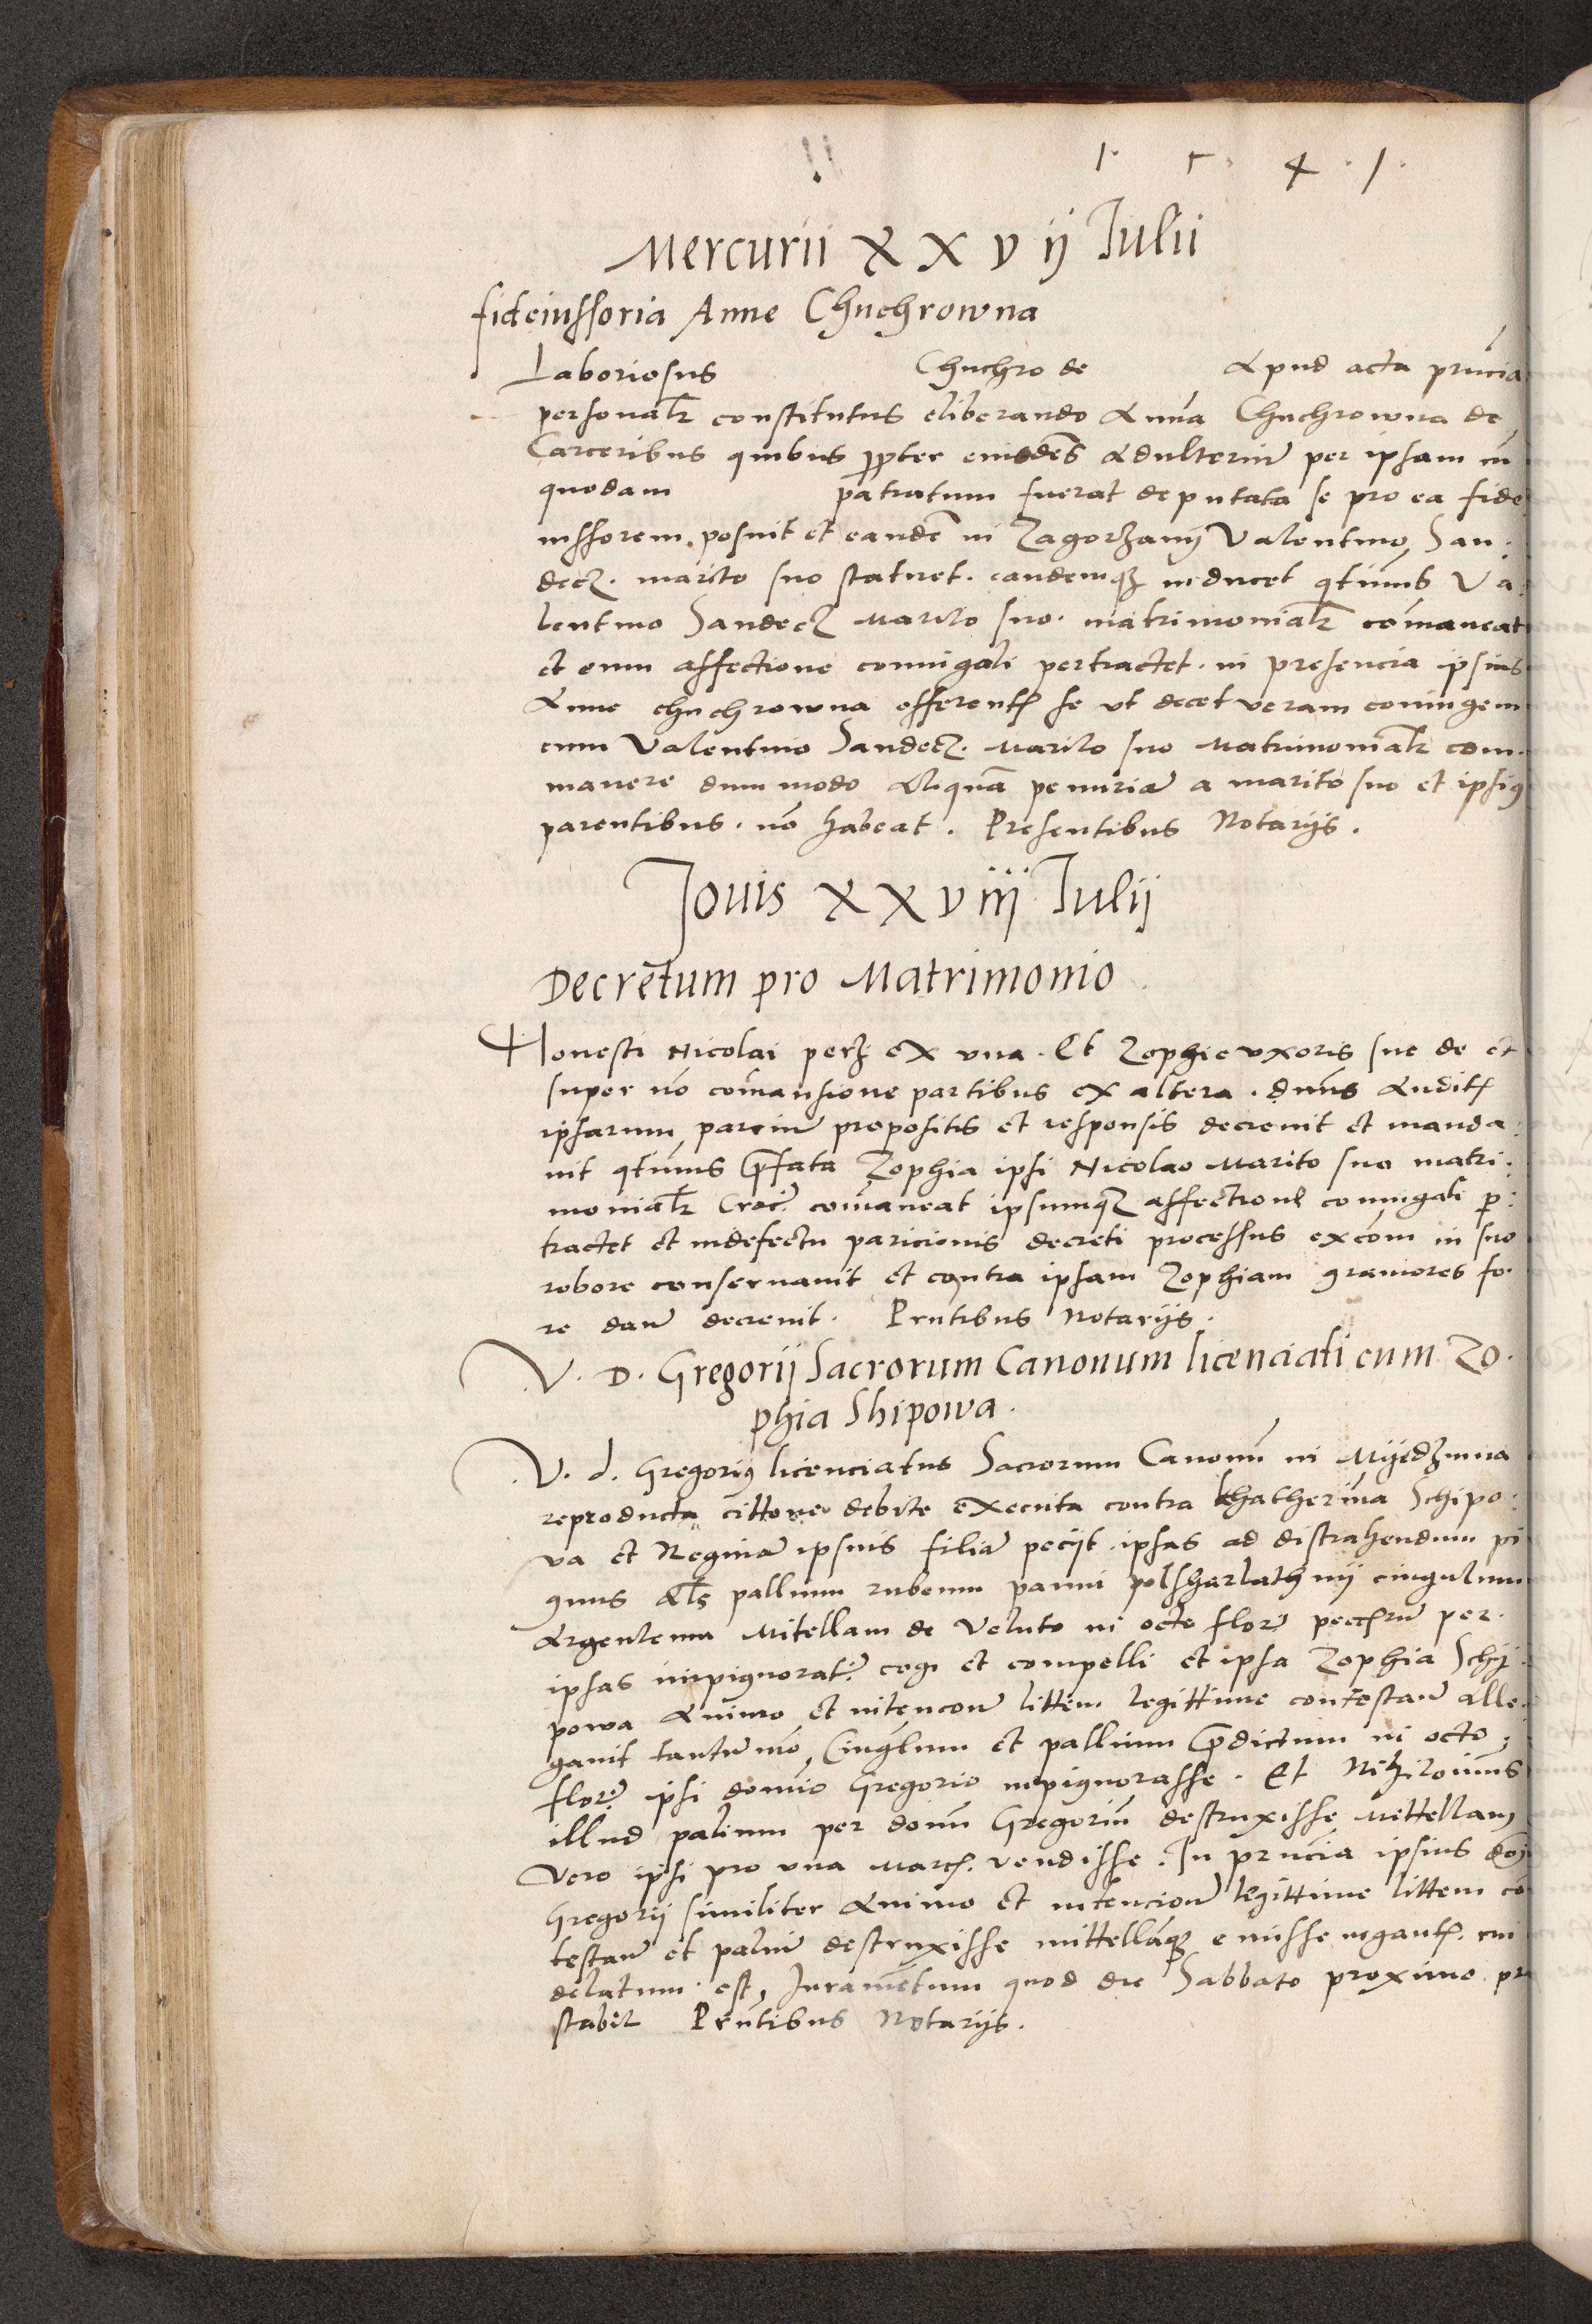 1. 5. 4. 1.
Mercurii XXVII Iulii
fideiussoria Anne Chuchrowna
Laboriosus Chuchro de Apud acta prñcia
personalr constitutus eliberando Anna Chuchrowna de
Carceribus quibus ppter eiusdẽ Adulteriũ per ipsam cũ
quodam patratum fuerat deputata se pro ea fide
iussorem posuit et eandẽ in Zagorzany Valentino San:
decz. marito suo statuet. eandemqz inducet qtinus Va:
lentino Sandecz Marito suo. matrimonialr cõmaneat
et eum affectione coniugali pertractet. in presencia ipsius
Anne chuchrowna offerentz se ut decet veram coniugem
cum Valentino Sandecz. Marito suo Matrimonialr com:
manere dummodo Aliquã penuriã a marito suo et ipsius
parentibus. nõ habeat. Presentibus Notarijs.
Jovis XXVIII Iulij
Decretum pro Matrimonio
Honesti Nicolai perz ex una. Et Zophie uxoris sue de et
super nõ cõmansione partibus ex altera. dñus Auditz
ipsarum parciũ propositis et responsis decrevit et manda:
vit qtinus prefata Zophia ipsi Nicolao Marito suo matri:
monialr cõmaneat ipsumqz affectione coniugali p:
tractet et indefectu paricionis decreti processus excõm in suo
robore conservavit et contra ipsam Zophiam graviores fo:
re dañ decrevit. Prñtibus Notarijs.
V. D. Gregorij Sacrorum Canonum licenciati cum Zo:
phia Shipowa.
V. d. Gregorius licenciatus Sacrorum Canonũ in Myedzwna
reproducta cittone debite executa contra Khatherina Schipo:
va et Reginã ipsius filiã peciit ipsas ad distrahendum pi
gnus als pallium rubeum panni polsharlath nij cingulum
Argenteum Mitellam de Veluto in octo florẽ per
ipsas impignoratz cogi et compelli et ipsa Zophia Schy:
powa Animo et intencoñ littem legittime contestañ alle:
gavit tantũmõ Cinglum et pallium predictum in octo
florẽ ipsi domiõ Gregorio inpignorasse. Et Nihilominus
illud palium per domũ Gregoriũ destruxisse Mettellam
vero ipsi pro una Marcz. vendisse. In prñcia ipsius dõi
Gregorij similiter Animo et intencioñ legittime littem cõ
testañ et paliũ destruxisse mittellãqz emisse negantz. cui
delatum est, Iuramẽtum quod die Sabbato proximo pre
stabit Prñtibus Notarijs.